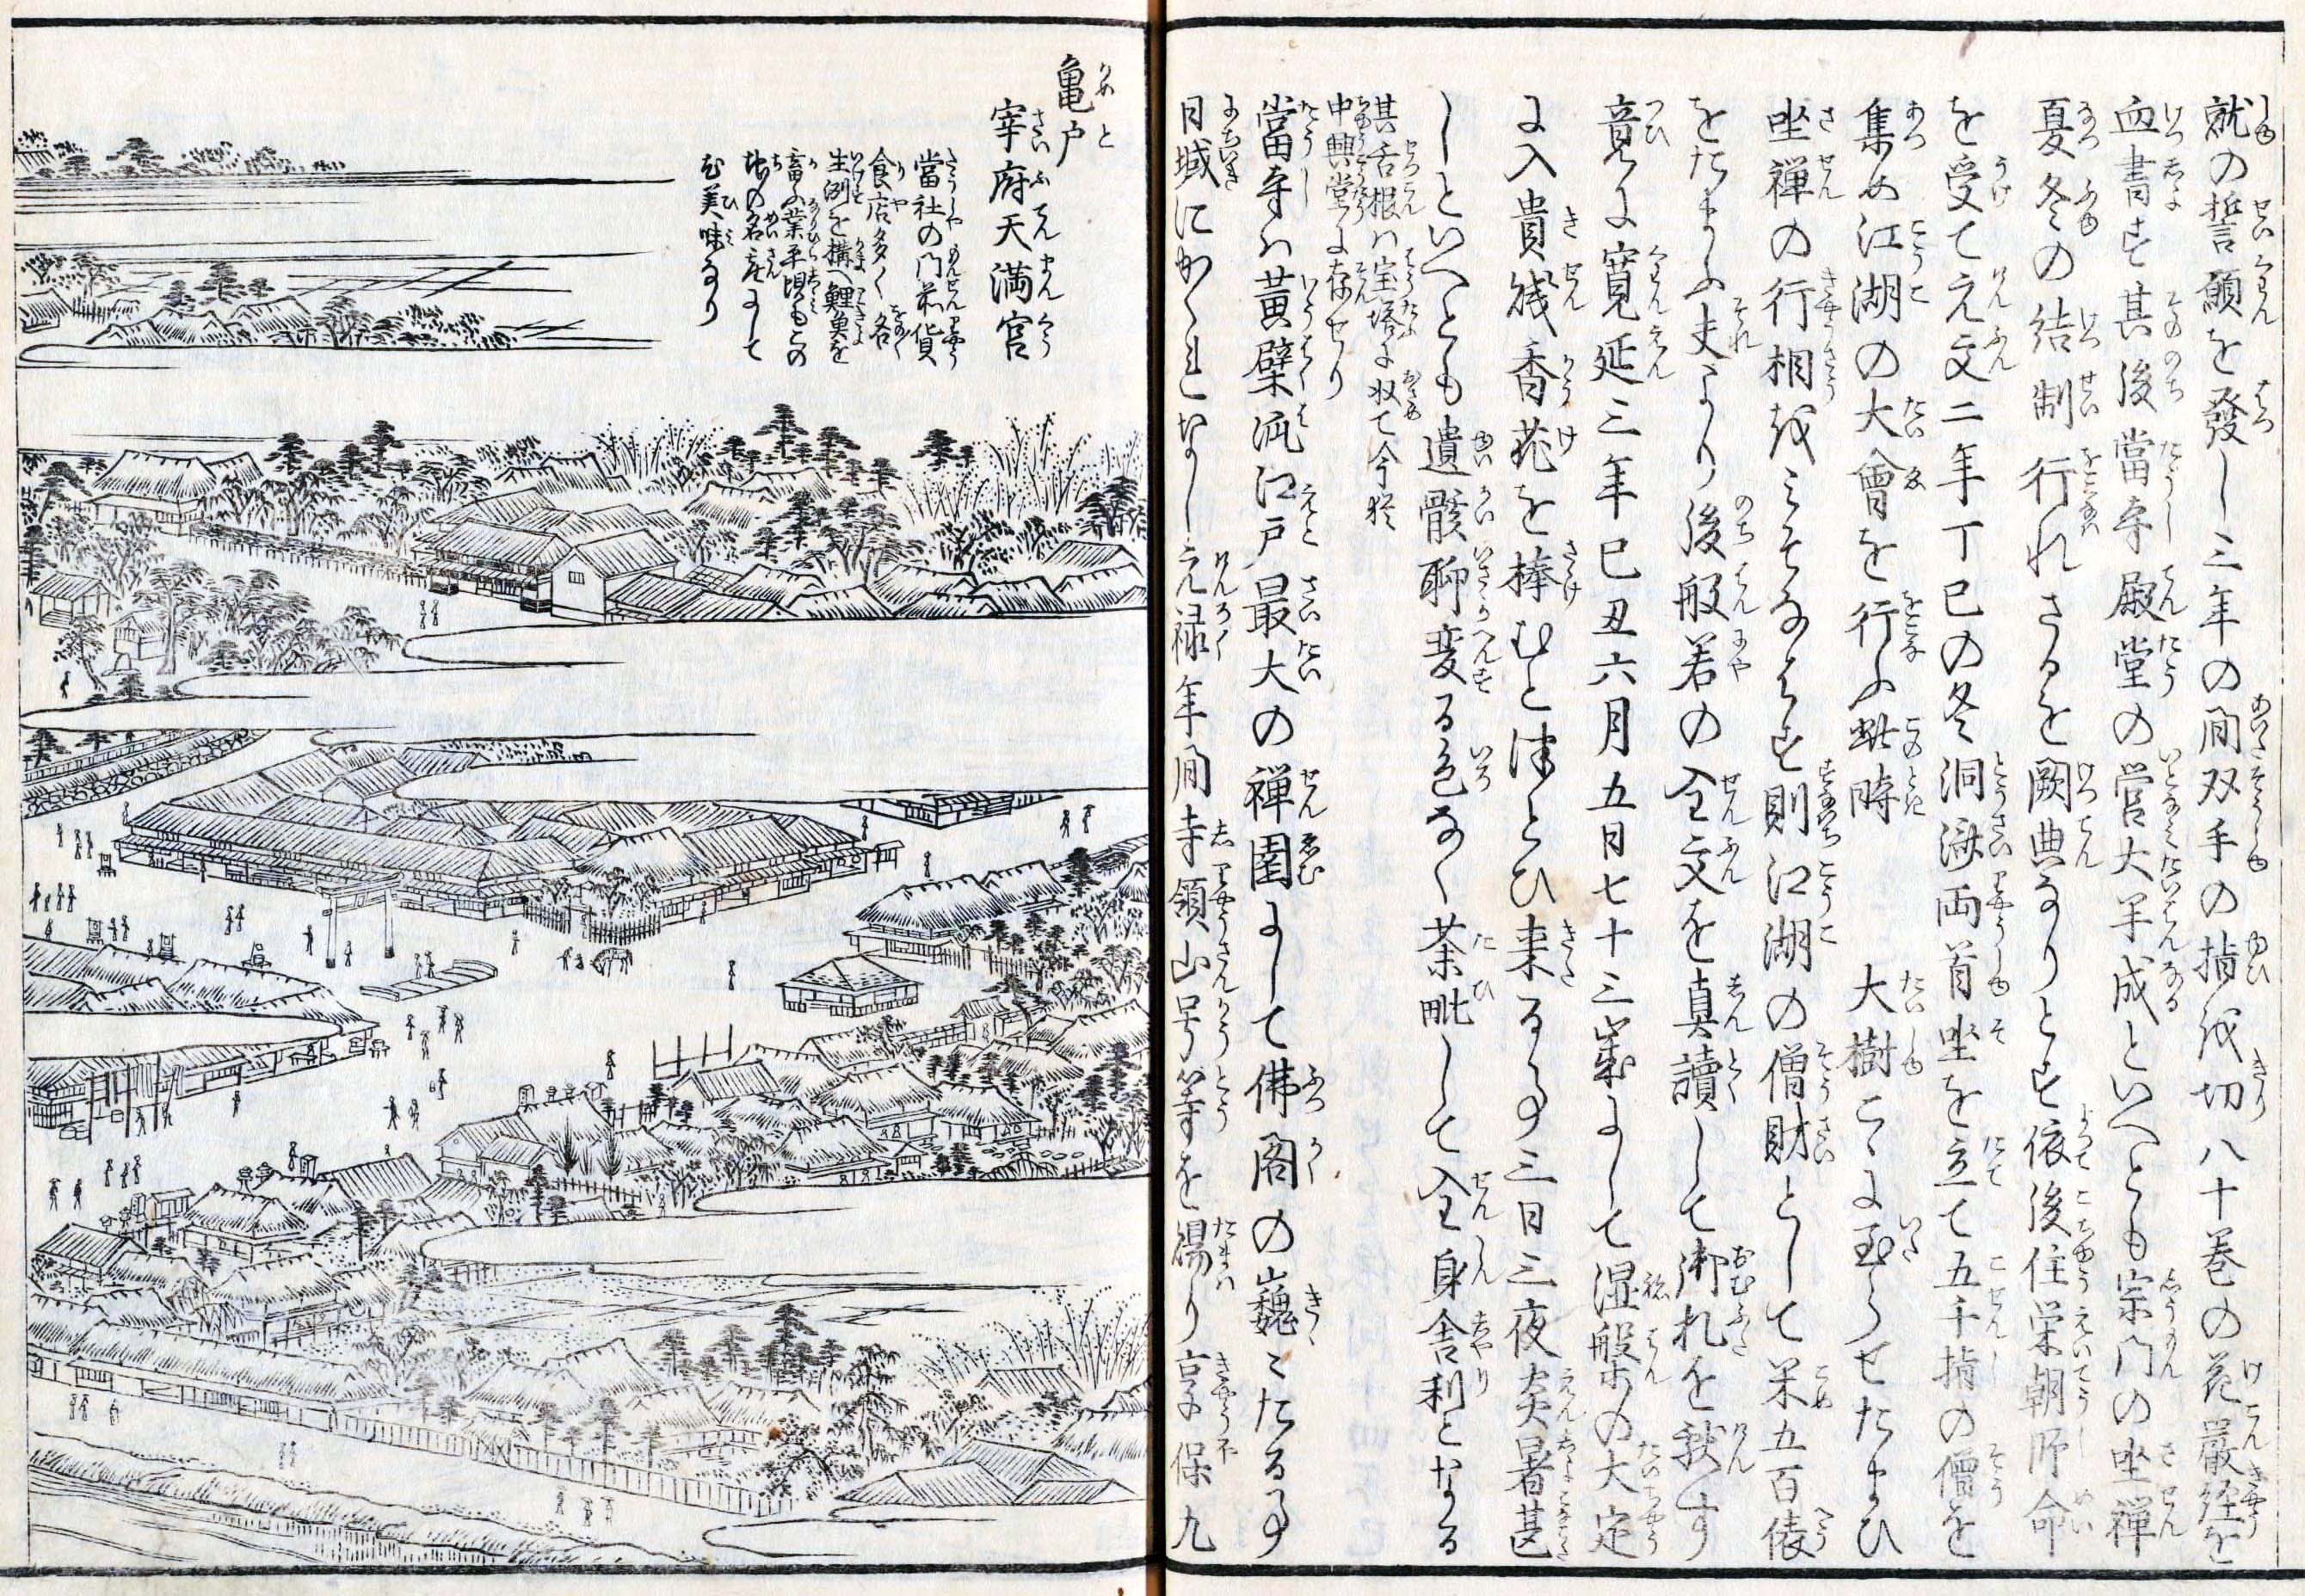 就の誓願を發し三年の間双手の指を切り八十巻の花嚴経を
血書す其後當寺殿堂の営大半成といへとも宗門の坐禅
夏冬の結制行れさるを闕典なりとす依後住栄朝師命
を受て元文二年丁巳の冬洞済両首坐を立て五千指の僧を
集め江湖の大會を行ふ此時　大樹こゝに至らせたまひ
坐禅の行相をみそなはす則江湖の僧財として米五百俵
をたまふ夫より後般若の全文を真讀して御札を献す
竟に寛延三年己丑六月五日七十三歳にして涅槃の大定
に入貴賎香花を捧むと津とひ来る事三日三夜炎暑甚
しといへとも遺骸聊変る色なく荼毗して全身舎利となる
其舌根ハ宝塔に収て今猶
中興堂に存せり
當寺ハ黄檗派江戸最大の禅園にして佛閣の巍〻たる事
日域にかくれなし元禄年間寺領山号等を賜り享保九
亀戸
宰府天満宮
當社の門前貨
食店多く各
生洲を構へ鯉魚を
畜ふ業平蜆もこの
地の名産にして
尤美味なり